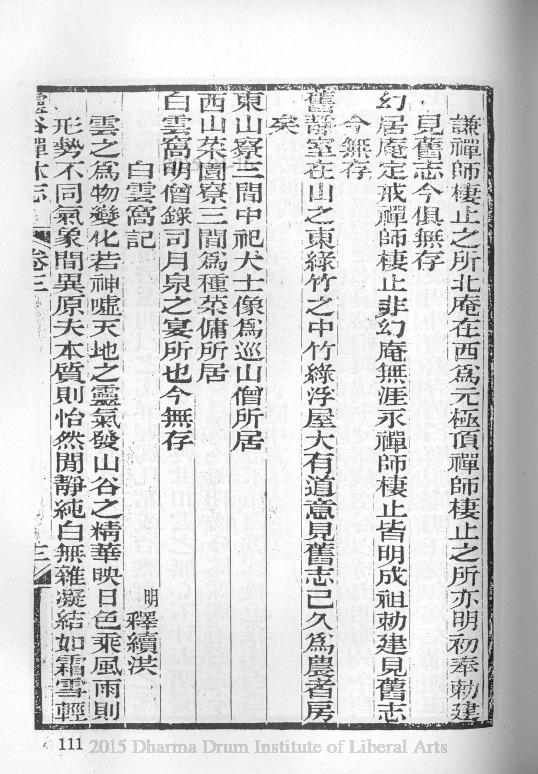 謙禪師棲止之所北庵在西爲元極頂禪師棲止之所亦明初奉勅建
見舊志今俱無存
幻居庵定戒禪師棲止非幻庵無涯永禪師棲止皆明成祖勅建見舊志
今無存
舊靜室在山之東綠竹之中竹綠浮屋大有道意見舊志已久爲農者房
矣
東山寮三間中祀大士像爲巡山僧所居
西山菜園寮三間爲種菜傭所居
白雲窩明僧錄司月泉之宴所也今無存
白雲窩記
明 釋續洪
雲之爲物變化若神噓天地之靈氣發山谷之精華映日色乘風雨則
形勢不同氣象間異原夫本質則怡然閒靜純白無雜凝結如霜雪輕
靈谷禪林志 卷三 三
111 2015 Dharma Drum Institute of Liberal Arts